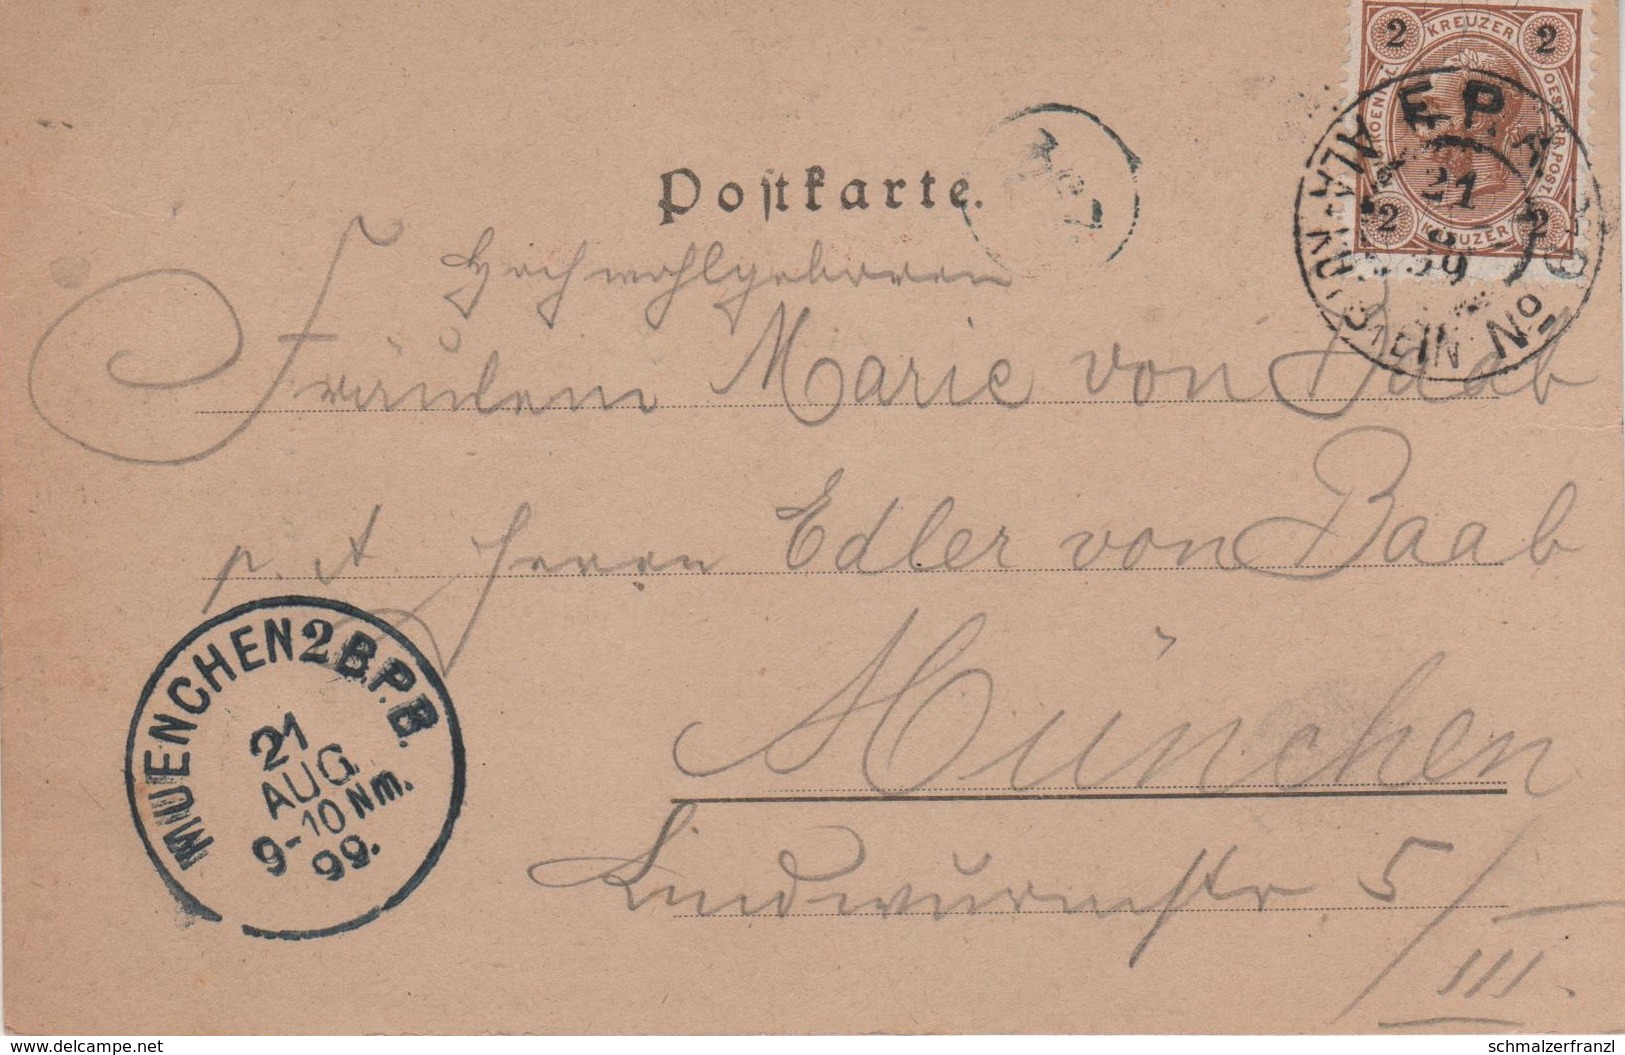 2 KREUZER 2
Postkarte.
327.
F.P.A.
21
8
99
2 KREUZER 2
Hochwohlgeboren
Fräulein Marie von Baab
p. A. Herrn Edler von Baab
München
MUENCHEN 2 B.P.B.
21
AUG.
9-10 Nm.
99.
Lindwurmstr. 5/III.
www.delcampe.net
schmalzerfranzl